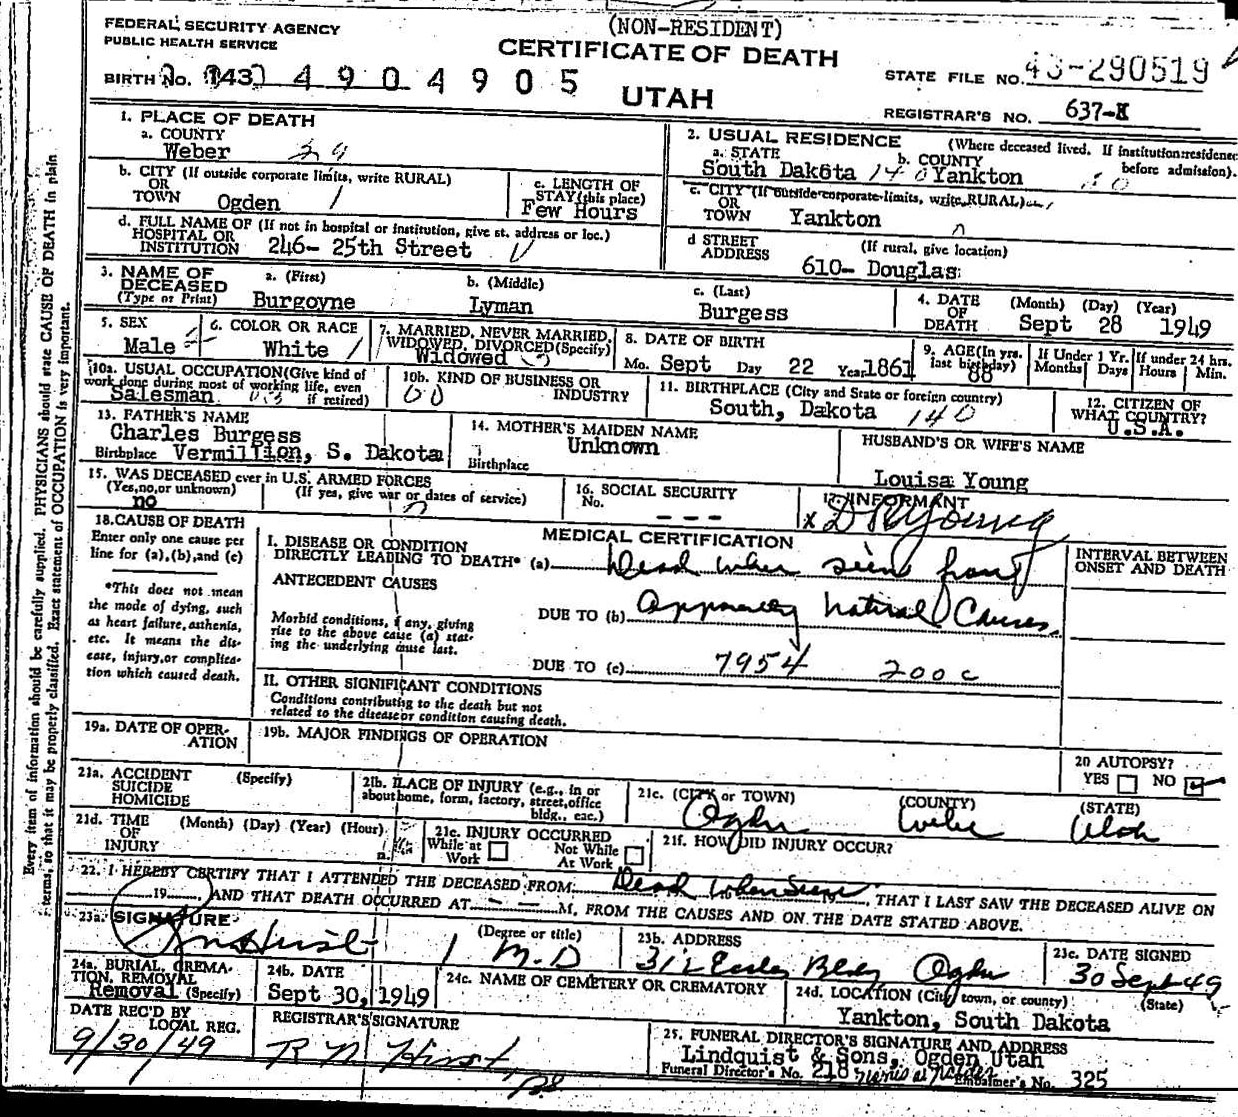 (NON-RESIDENT)
FEDERAL SECURITY AGENCY
PUBLIC HEALTH SERVICE
CERTIFICATE OF DEATH
BIRTH No. 143 4904905
UTAH
STATE FILE NO. 290519
REGISTRAR'S NO. 637-X
1. PLACE OF DEATH
a. COUNTY
Weber 29
b. CITY (If outside corporate limits, write RURAL)
OR
TOWN Ogden 1
c. LENGTH OF
STAY (this place)
Few Hours
d. FULL NAME OF (If not in hospital or institution, give st. address or loc.)
HOSPITAL OR
INSTITUTION 246- 25th Street
2. USUAL RESIDENCE (Where deceased lived. If institution:residence before admission).
a. STATE b. COUNTY
South Dakota 140 Yankton
c. CITY (If outside corporate limits, write RURAL)
OR
TOWN Yankton
d STREET (If rural, give location)
ADDRESS
610- Douglas
3. NAME OF DECEASED (Type or Print)
a. (First) b. (Middle) c. (Last)
Burgoyne Lyman Burgess
4. DATE OF DEATH (Month) (Day) (Year)
Sept 28 1949
5. SEX
Male
6. COLOR OR RACE
White
7. MARRIED, NEVER MARRIED, WIDOWED, DIVORCED (Specify)
Widowed
8. DATE OF BIRTH
Mo. Sept Day 22 Year 1861
9. AGE (In yrs. last birthday)
88
If Under 1 Yr. Months Days
If under 24 hrs. Hours Min.
10a. USUAL OCCUPATION (Give kind of work done during most of working life, even if retired)
Salesman
10b. KIND OF BUSINESS OR INDUSTRY
11. BIRTHPLACE (City and State or foreign country)
South, Dakota 140
12. CITIZEN OF WHAT COUNTRY?
U.S.A.
13. FATHER'S NAME
Charles Burgess
Birthplace Vermillion, S. Dakota
14. MOTHER'S MAIDEN NAME
Unknown
Birthplace
HUSBAND'S OR WIFE'S NAME
Louisa Young
15. WAS DECEASED ever in U.S. ARMED FORCES
(Yes,no,or unknown) (If yes, give war or dates of service)
no
16. SOCIAL SECURITY
No. - - -
17. INFORMANT
x
18. CAUSE OF DEATH
Enter only one cause per
line for (a), (b), and (c)
*This does not mean
the mode of dying, such
as heart failure, asthenia,
etc. It means the dis-
ease, injury, or complica-
tion which caused death.
MEDICAL CERTIFICATION
I. DISEASE OR CONDITION
DIRECTLY LEADING TO DEATH* (a) Dead when seen
ANTECEDENT CAUSES
Morbid conditions, if any, giving
rise to the above cause (a) stat-
ing the underlying cause last.
DUE TO (b) Apparently Natural Causes
DUE TO (c) 7954 200c
INTERVAL BETWEEN
ONSET AND DEATH
II. OTHER SIGNIFICANT CONDITIONS
Conditions contributing to the death but not
related to the disease or condition causing death.
19a. DATE OF OPER-
ATION
19b. MAJOR FINDINGS OF OPERATION
20 AUTOPSY?
YES NO
21a. ACCIDENT (Specify)
SUICIDE
HOMICIDE
21b. PLACE OF INJURY (e.g., in or
about home, form, factory, street, office
bldg., etc.)
21c. (CITY or TOWN) (COUNTY) (STATE)
Ogden Weber Utah
21d. TIME (Month) (Day) (Year) (Hour)
OF
INJURY
21e. INJURY OCCURRED
While at Work Not While At Work
21f. HOW DID INJURY OCCUR?
22. I HEREBY CERTIFY THAT I ATTENDED THE DECEASED FROM Dead When Seen 19, THAT I LAST SAW THE DECEASED ALIVE ON
19 AND THAT DEATH OCCURRED AT - - M. FROM THE CAUSES AND ON THE DATE STATED ABOVE.
23a. SIGNATURE (Degree or title)
M.D
23b. ADDRESS
Bldg Ogden
23c. DATE SIGNED
30 Sept 49
24a. BURIAL, CREMA-
TION, REMOVAL
Removal (Specify)
24b. DATE
Sept 30, 1949
24c. NAME OF CEMETERY OR CREMATORY
24d. LOCATION (City, town, or county) (State)
Yankton, South Dakota
DATE REC'D BY
LOCAL REG.
9/30/49
REGISTRAR'S SIGNATURE
25. FUNERAL DIRECTOR'S SIGNATURE AND ADDRESS
Lindquist & Sons, Ogden Utah
Funeral Director's No. 218 Embalmer's No. 325
Every item of information should be carefully supplied. PHYSICIANS should state CAUSE OF DEATH in plain
terms, so that it may be properly classified. Exact statement of OCCUPATION is very important.